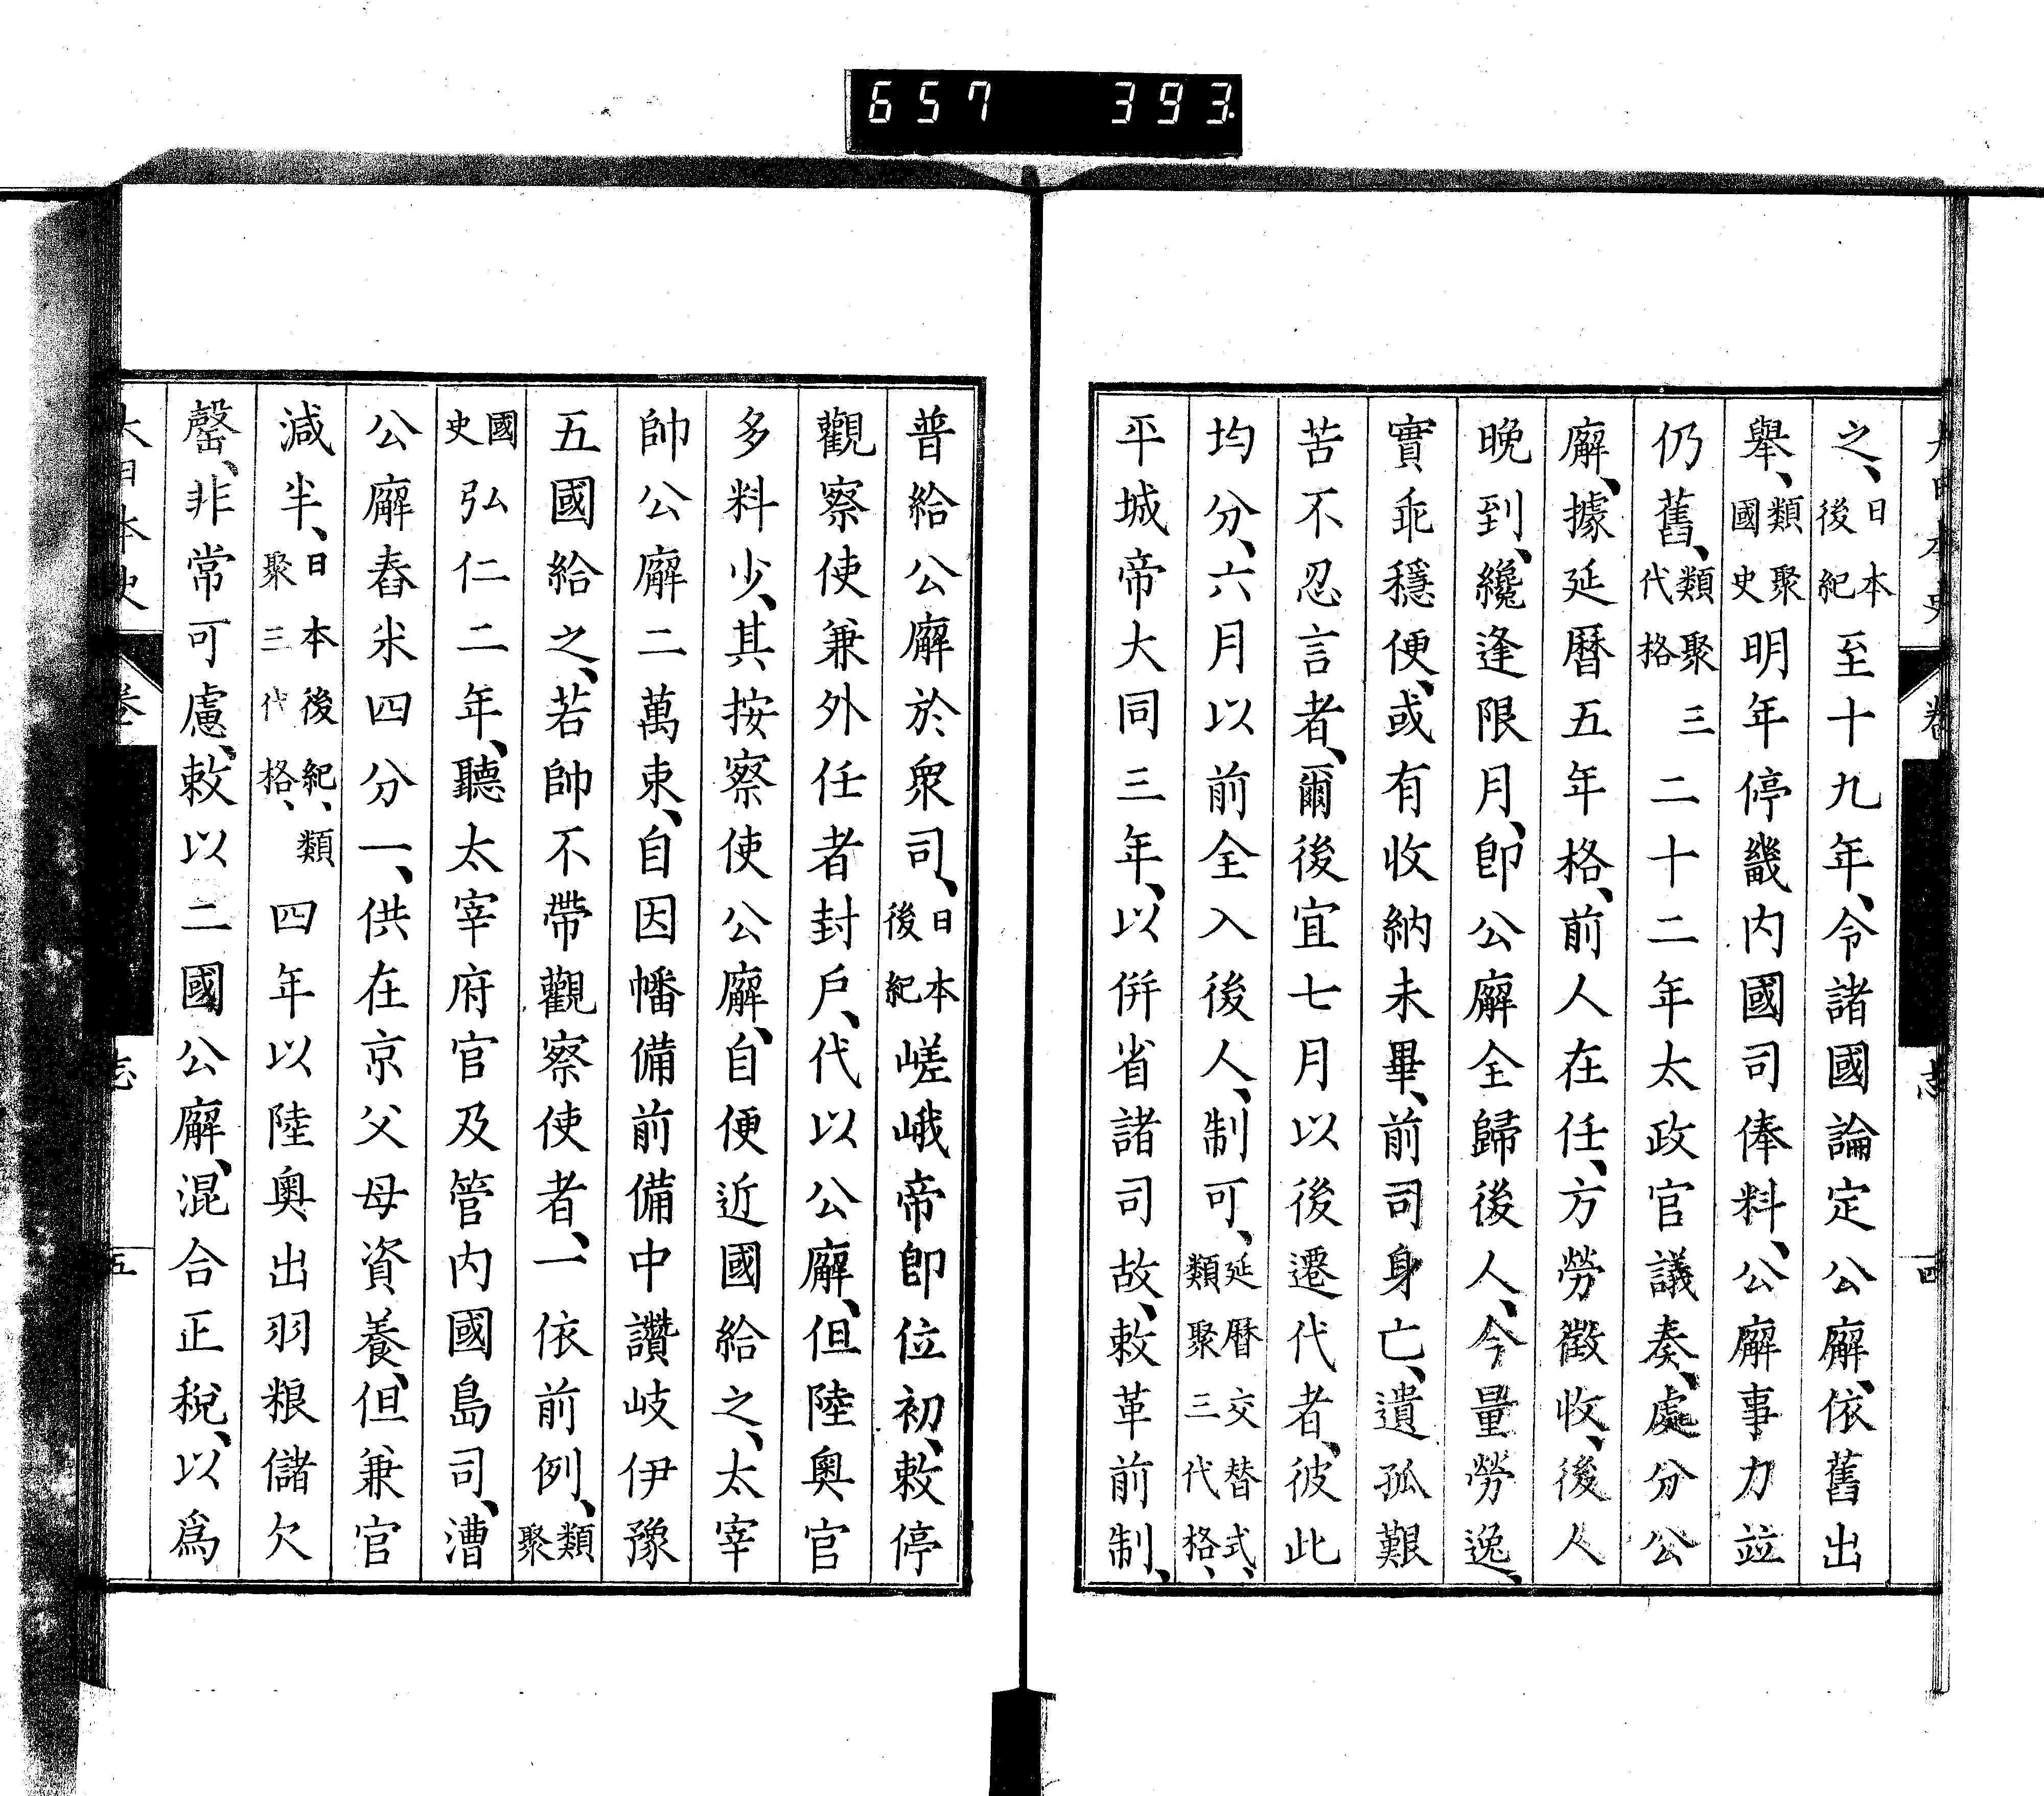 657 393
之、日本後紀至十九年、令諸國論定公廨、依舊出
舉、類聚國史明年停畿内國司俸料、公廨事力竝
仍舊、類聚三代格二十二年太政官議奏、處分公
廨、據延曆五年格、前人在任、方勞徵收、後人
晩到、纔逢限月、卽公廨全歸後人、今量勞逸、
實乖穩便、或有收納未畢、前司身亡、遺孤艱
苦不忍言者、爾後宜七月以後遷代者、彼此
均分、六月以前全入後人、制可、延曆交替式、類聚三代格、
平城帝大同三年、以併省諸司故、敕革前制、
普給公廨於衆司、日本後紀嵯峨帝卽位初、敕停
觀察使兼外任者封戶、代以公廨、但陸奧官
多料少、其按察使公廨、自便近國給之、太宰
帥公廨二萬束、自因幡備前備中讚岐伊豫
五國給之、若帥不帶觀察使者、一依前例、類聚
國史弘仁二年、聽太宰府官及管内國島司、漕
公廨舂米四分一、供在京父母資養、但兼官
減半、日本後紀、類聚三代格、四年以陸奧出羽粮儲欠
罄、非常可慮、敕以二國公廨、混合正稅、以爲
大日本史 卷 志 五